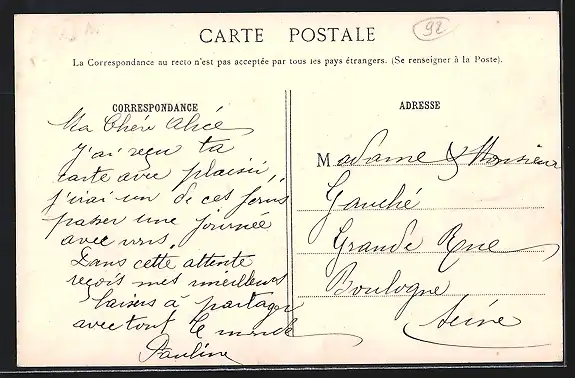 CARTE POSTALE
92
La Correspondance au recto n'est pas acceptée par tous les pays étrangers. (Se renseigner à la Poste).
CORRESPONDANCE
Ma Chère Alice
J'ai reçu ta
carte avec plaisir,
j'irai un de ces jours
passer une journée
avec vous.
Dans cette attente
reçois mes meilleurs
baisers à partager
avec tout le monde
Pauline
ADRESSE
Madame & Monsieur
Gauché
Grande Rue
Boulogne
Seine